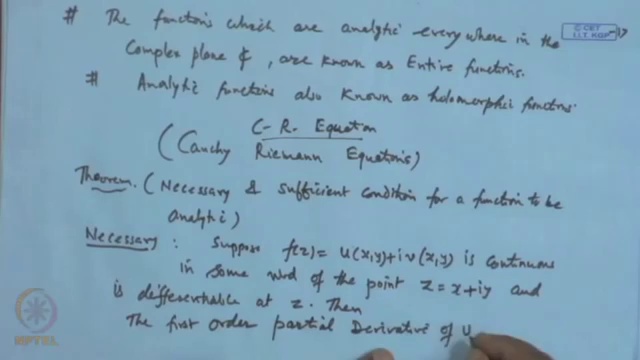 # The functions which are analytic everywhere in the
Complex plane ₵, are known as Entire functions.
# Analytic functions also known as holomorphic functions.
C-R- Equation
(Cauchy Riemann Equations)
Theorem. (Necessary & sufficient condition for a function to be
analytic)
Necessary : Suppose f(z) = u(x,y)+iv(x,y) is continuous
in some nbd of the point z=x+iy and
is differentiable at z. Then
The first order partial Derivative of u
© CET
I.I.T. KGP
NPTEL